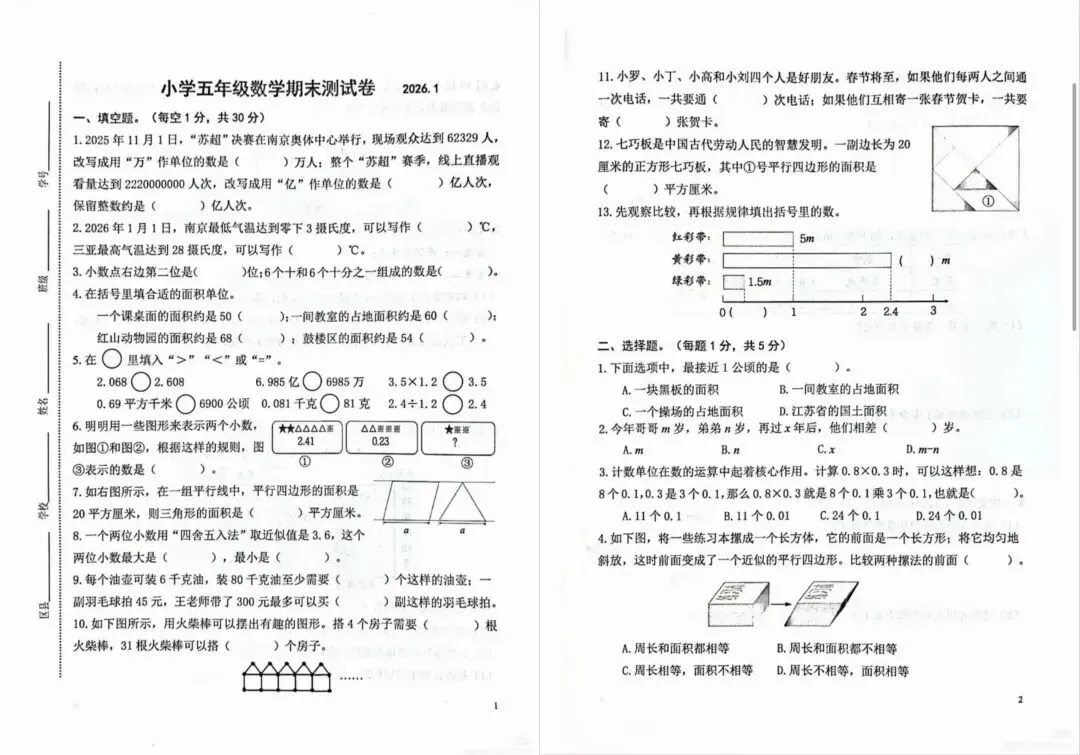 小学五年级数学期末测试卷 2026.1
一、填空题。（每空1分，共30分）
1.2025年11月1日，“苏超”决赛在南京奥体中心举行，现场观众达到62329人，
改写成用“万”作单位的数是（ ）万人；整个“苏超”赛季，线上直播观
看量达到2220000000人次，改写成用“亿”作单位的数是（ ）亿人次，
保留整数约是（ ）亿人次。
2.2026年1月1日，南京最低气温达到零下3摄氏度，可以写作（ ）℃，
三亚最高气温达到28摄氏度，可以写作（ ）℃。
3.小数点右边第二位是（ ）位；6个十和6个十分之一组成的数是（ ）。
4.在括号里填合适的面积单位。
一个课桌面的面积约是50（ ）；一间教室的占地面积约是60（ ）；
红山动物园的面积约是68（ ）；鼓楼区的面积约是54（ ）。
5.在○里填入“>”“<”或“=”。
2.068○2.608 6.985亿○6985万 3.5×1.2○3.5
0.69平方千米○6900公顷 0.081千克○81克 2.4÷1.2○2.4
6.明明用一些图形来表示两个小数，
如图①和图②，根据这样的规则，图
③表示的数是（ ）。
★★△△△△※
2.41
①
△△※※※
0.23
②
★※※
?
③
7.如右图所示，在一组平行线中，平行四边形的面积是
20平方厘米，则三角形的面积是（ ）平方厘米。
a a
8.一个两位小数用“四舍五入法”取近似值是3.6，这个
两位小数最大是（ ），最小是（ ）。
9.每个油壶可装6千克油，装80千克油至少需要（ ）个这样的油壶；一
副羽毛球拍45元，王老师带了300元最多可以买（ ）副这样的羽毛球拍。
10.如下图所示，用火柴棒可以摆出有趣的图形。搭4个房子需要（ ）根
火柴棒，31根火柴棒可以搭（ ）个房子。
……
1
学号
班级
姓名
学校
区县
11.小罗、小丁、小高和小刘四个人是好朋友。春节将至，如果他们每两人之间通
一次电话，一共要通（ ）次电话；如果他们互相寄一张春节贺卡，一共要
寄（ ）张贺卡。
12.七巧板是中国古代劳动人民的智慧发明。一副边长为20
厘米的正方形七巧板，其中①号平行四边形的面积是
（ ）平方厘米。
①
13.先观察比较，再根据规律填出括号里的数。
红彩带： 5m
黄彩带： （ ）m
绿彩带： 1.5m
0（ ） 1 2 2.4 3
二、选择题。（每题1分，共5分）
1.下面选项中，最接近1公顷的是（ ）。
A.一块黑板的面积 B.一间教室的占地面积
C.一个操场的占地面积 D.江苏省的国土面积
2.今年哥哥m岁，弟弟n岁，再过x年后，他们相差（ ）岁。
A.m B.n C.x D.m-n
3.计数单位在数的运算中起着核心作用。计算0.8×0.3时，可以这样想：0.8是
8个0.1,0.3是3个0.1,那么0.8×0.3就是8个0.1乘3个0.1,也就是( )。
A.11个0.1 B.11个0.01 C.24个0.1 D.24个0.01
4.如下图，将一些练习本摞成一个长方体，它的前面是一个长方形；将它均匀地
斜放，这时前面变成了一个近似的平行四边形。比较两种摞法的前面（ ）。
A.周长和面积都相等 B.周长和面积都不相等
C.周长相等，面积不相等 D.周长不相等，面积相等
2